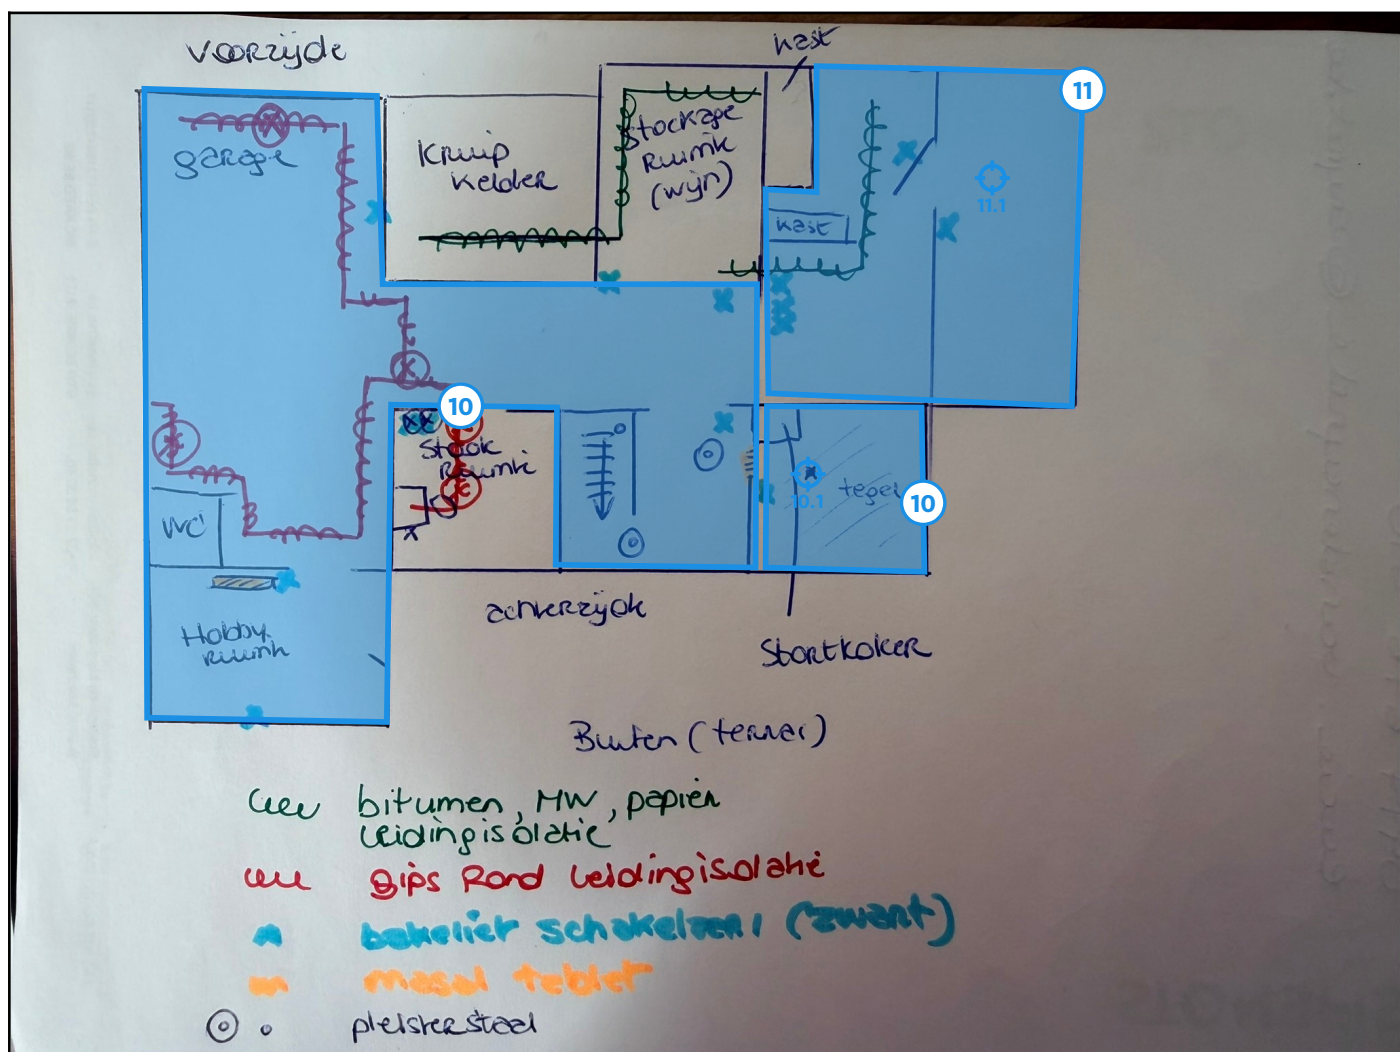 voorzijde
kast
11
garage
Kruip
kelder
Stockage
Ruimte
(wijn)
kast
11.1
10
Stook
Ruimte
10.1
tegel
10
WC
achterzijde
Hobby
ruimte
Stortkoker
Buiten (terras)
bitumen, MW, papier
leidingisolatie
gips Rond leidingisolatie
bakeliet schakelaar (zwart)
masal tablet
pleisterstaal